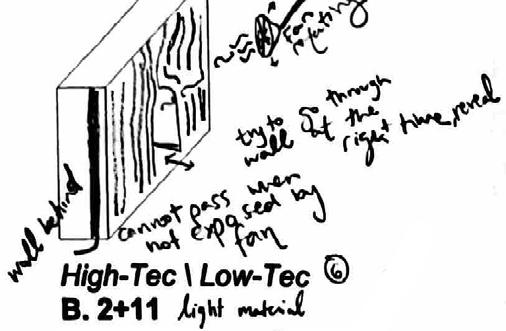 fan
rotating
try to go through
wall at the
right time, reveal
wall behind
cannot pass when
not exposed by
fan
High-Tec \ Low-Tec ⑥
B. 2+11 light material